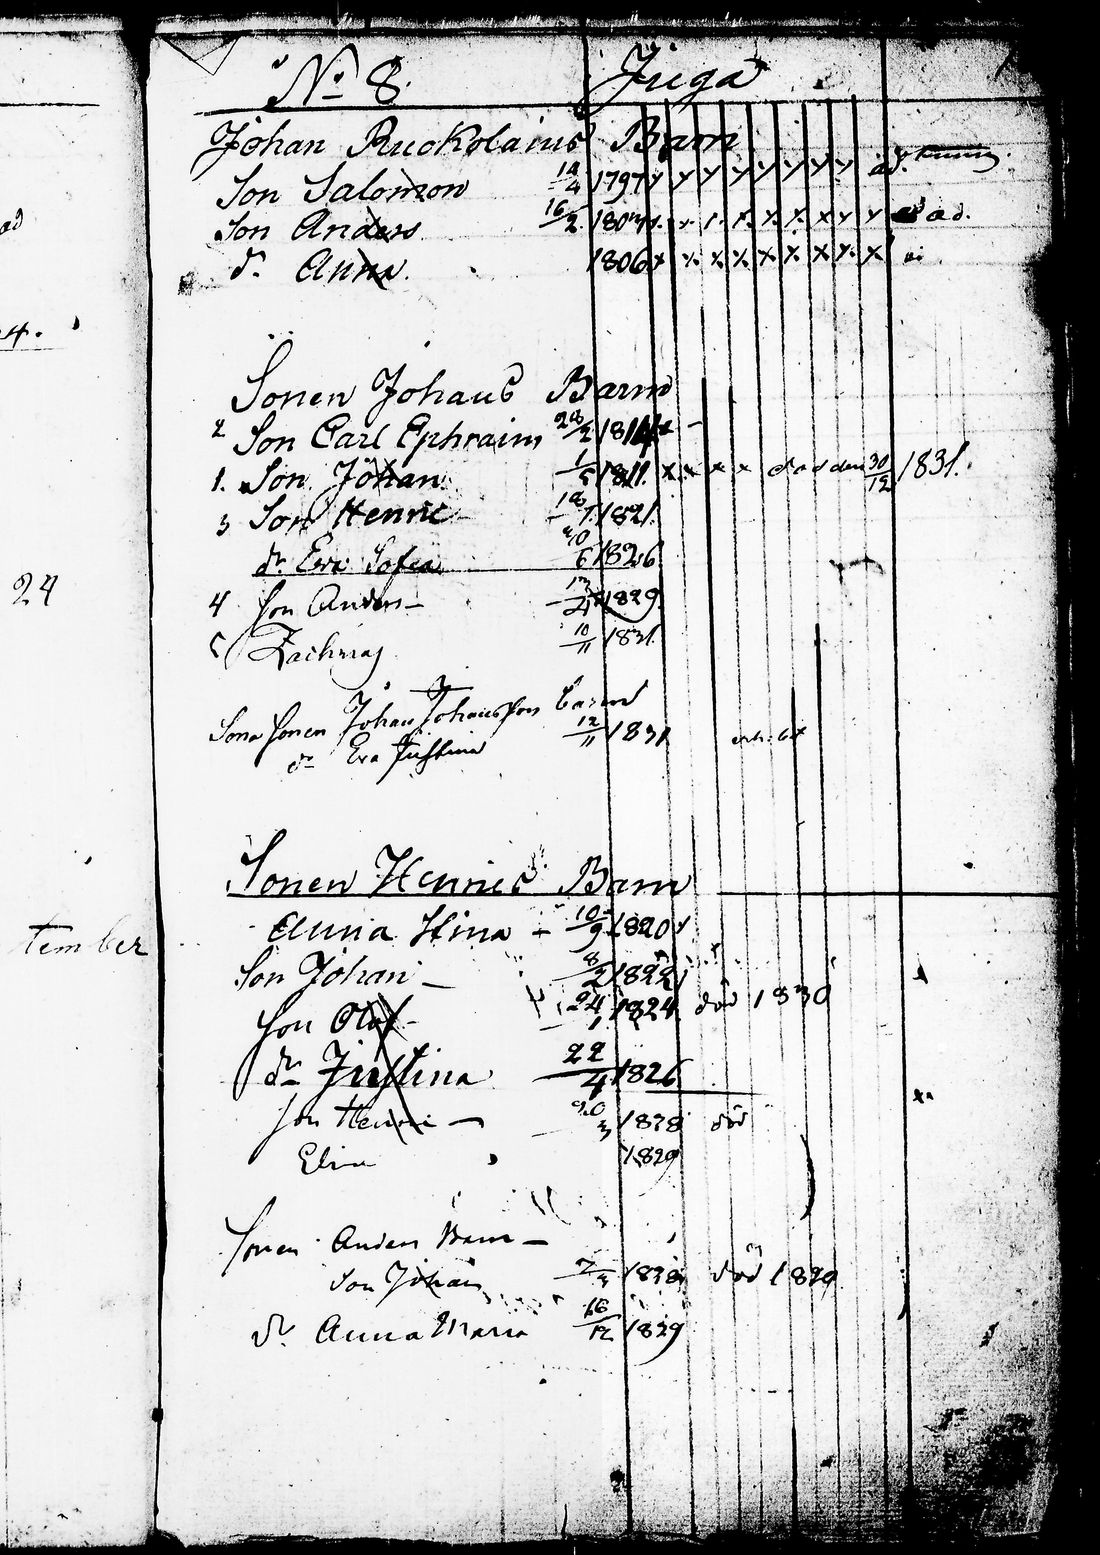 ad
4.
24
tember
No 8. Juga
Johan Ruckolainens Barn
Son Salomon 14/4 1797 x x x x x x x x ad.
Son Anders 16/2 180 x x x x x x x x ad.
dr. Anna 1806 x x x x x x x x x
Sonen Johans Barn
2 Son Carl Ephraim 28/2 1814 -
1. Son Johan 1/5 1811. x x x x död den 30/12 1831.
3 Son Henric 18/7 1821.
dr. Eva Sofia 20/6 1826
4 Son Anders - 1829
5 Zachrias 10/11 1831.
Sona Sonen Johan Johansson barn
dr Eva Justina 12/11 1831
Sonen Henrics Barn
Anna Stina - 10/9 1820
Son Johan - 8/2 1822
Son Olof - 24/1 1824. död 1830
dr Justina 22/4 1826
Son Henric - 20/3 1828 död
Elin 1829
Sonen Anders Barn -
Son Johan 7/3 1828 död 1829
dr. Anna Maria 16/12 1829